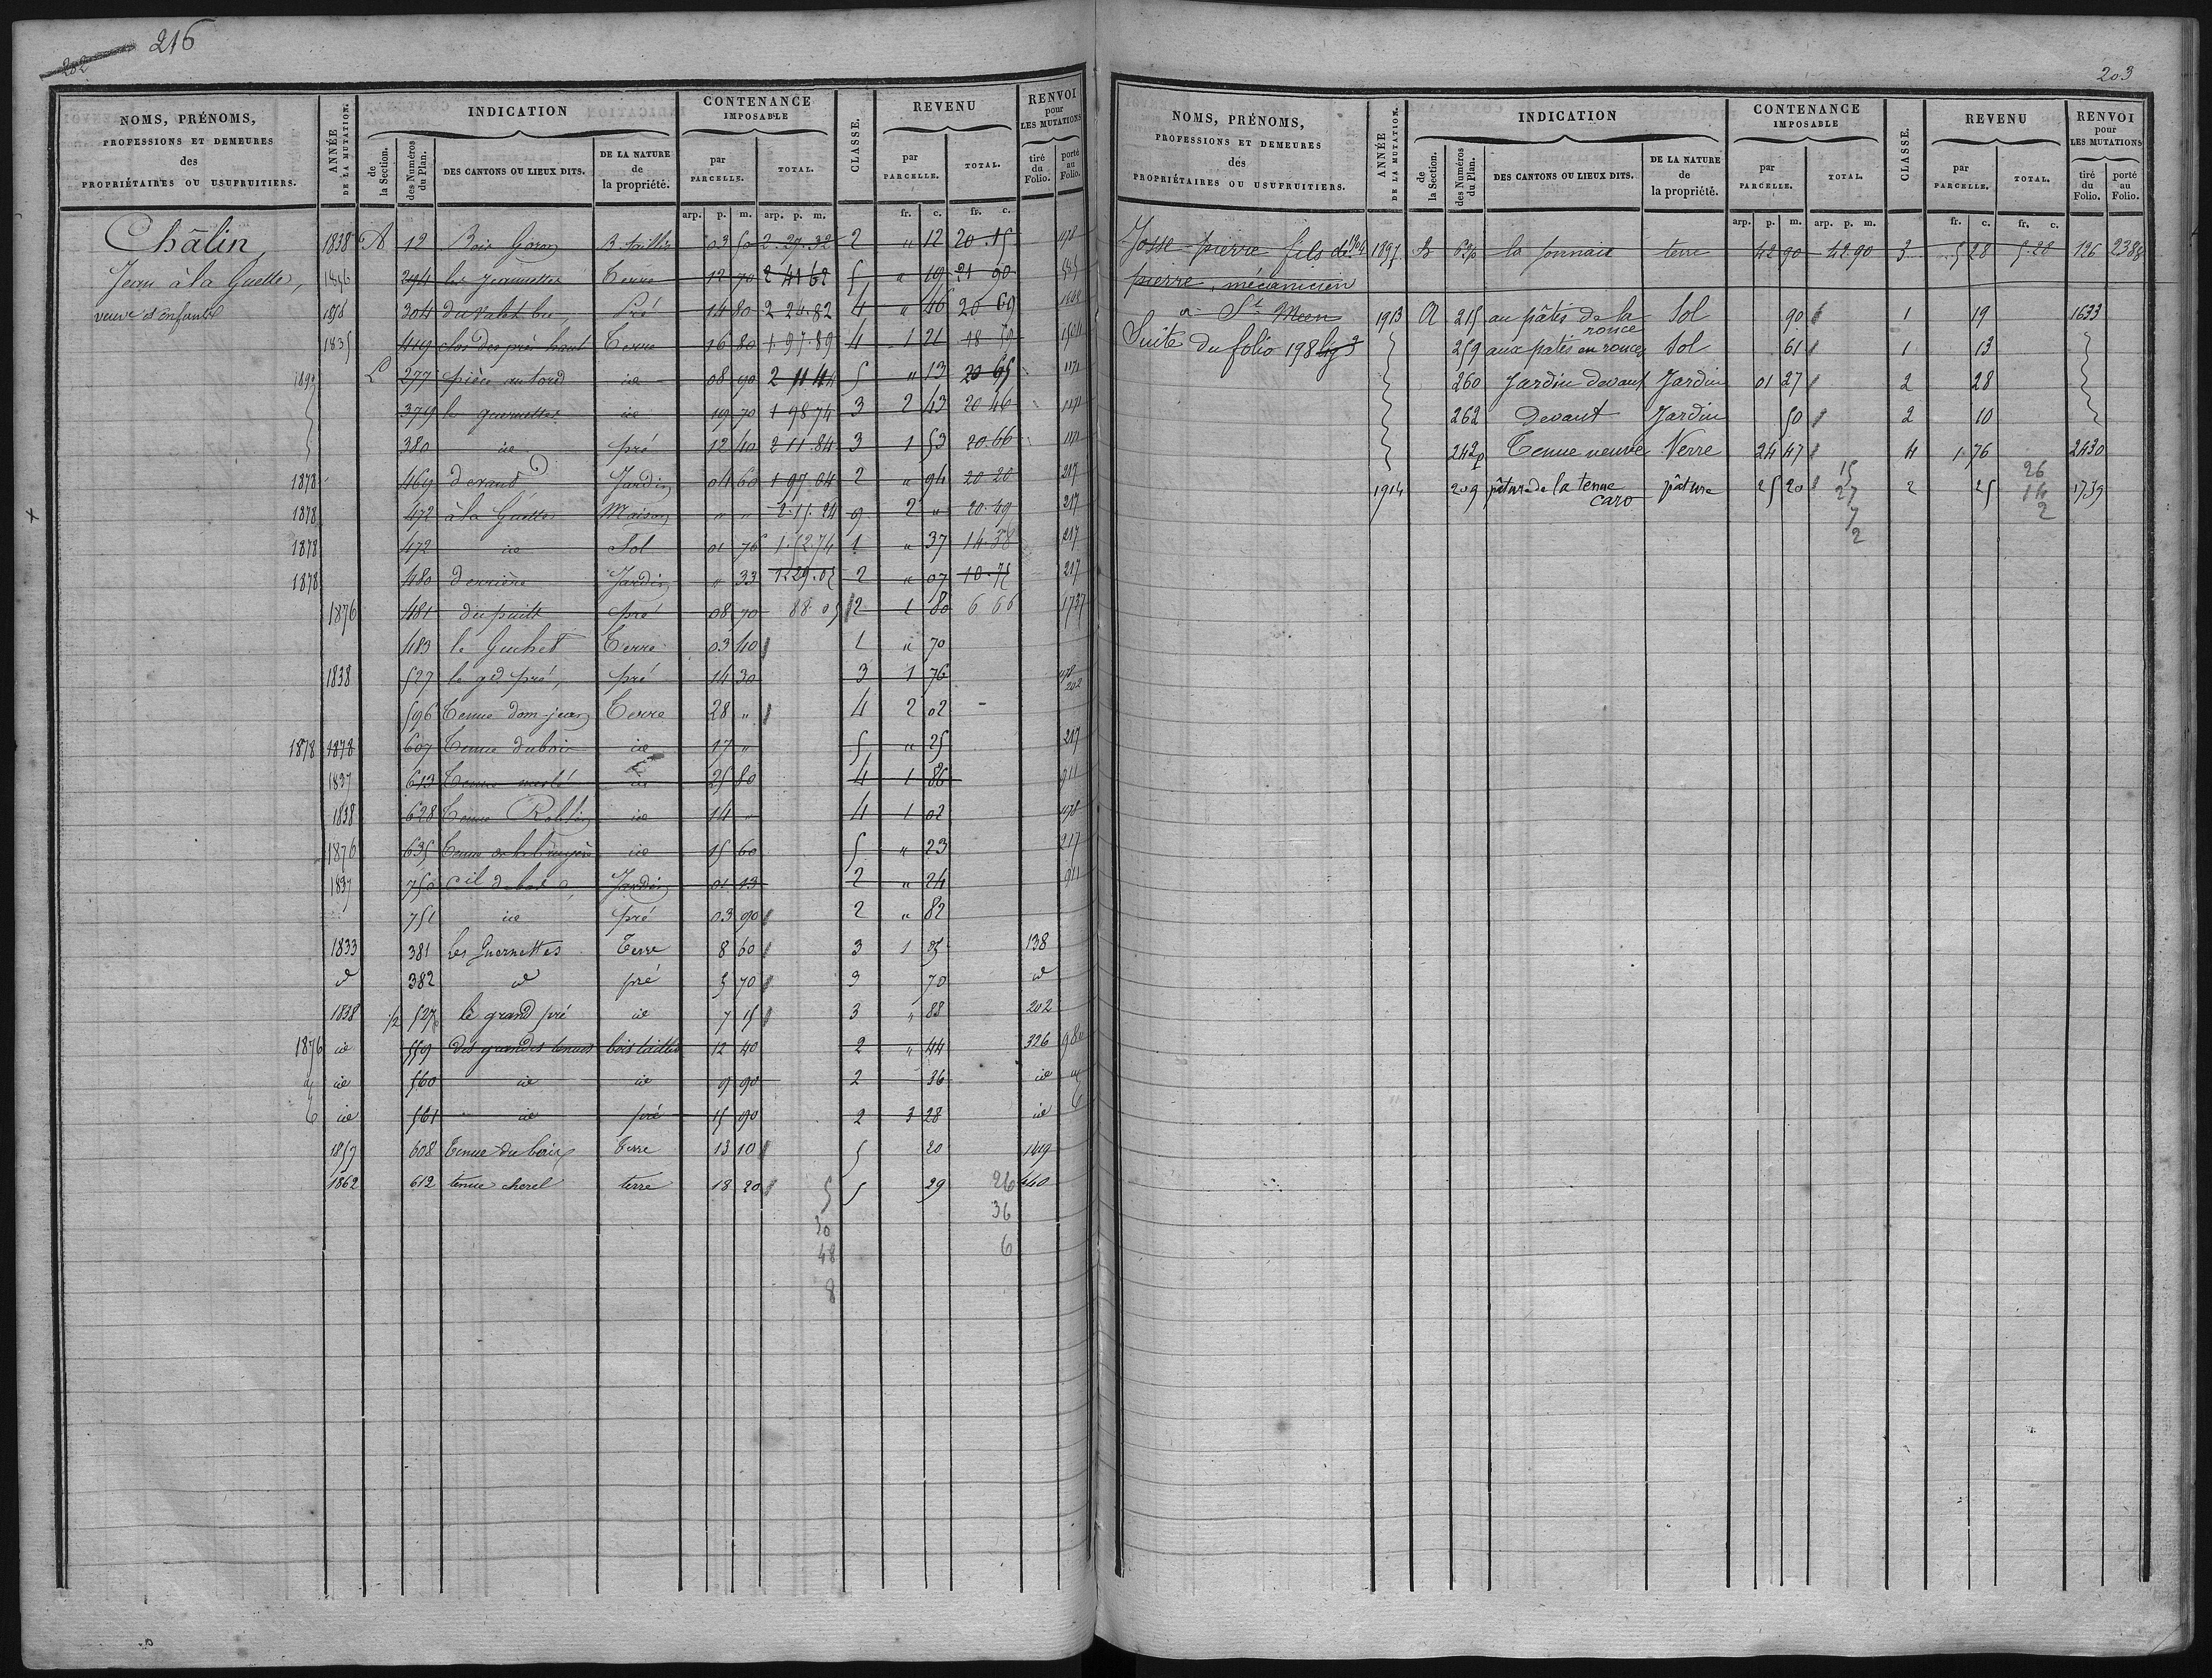 216
202
NOMS, PRÉNOMS,
PROFESSIONS ET DEMEURES
des
PROPRIÉTAIRES OU USUFRUITIERS.
ANNÉE
DE LA MUTATION.
INDICATION
de la Section.
des Numéros du Plan.
DES CANTONS OU LIEUX DITS.
DE LA NATURE de la propriété.
CONTENANCE IMPOSABLE
par PARCELLE.
TOTAL.
CLASSE.
REVENU
par PARCELLE.
TOTAL.
RENVOI pour LES MUTATIONS
tiré du Folio.
porté au Folio.
arp. p. m. arp. p. m. fr. c. fr. c.
Châlin
Jean à la Guette,
veuve et enfants
1838 A 12 Bois Goron B. taillis 03 50 2.27.32 2 " 12 20.15
1856 294 les jeannettes Terre 12 70 2 41 62 5 " 19 21 90
304 Pré 14 80 2 24.82 4 " 46 20 69
1835 449 clos des prés haut Terre 16 80 1.97.89 4 1 21 18 79
L 277 pièce id 08 90 2 11 44 5 " 13 20 65 1171
379 les guernettes id 19 70 1 98 74 3 2 43 20 46 1171
380 id pré 12 40 2 11.84 3 1 53 20.66 1171
1878 469 devant Jardin 04 60 1 97 04 2 " 94 20 20 217
1878 472 à la Guette Maison " " 2.15.24 9 2 " 20.49 217
1878 472 id Sol 01 70 1.52.74 1 " 37 14.38 217
1878 480 derrière Jardin " 33 1 29.05 2 " 07 10.75 217
1876 481 du puits pré 08 70 88 05 2 1 80 6 66 1737
483 le Guchet Terre 03 40 1 " 70
1838 527 le gd pré, pré 14 30 3 1 76 202
596 Tenue dom jean Terre 28 " 4 2 02
1878 1878 607 Tenue du bois id 17 " 5 " 25 217
1837 613 Tenue id 25 80 4 1 86 911
1838 628 Tenue Roblin id 14 " 4 1 02
1876 635 Tenue de la bruyère id 15 60 5 " 23 217
1837 750 Jardin 01 13 2 " 24 911
751 id pré 03 90 2 " 82
1833 381 Les Guernettes Terre 8 60 3 1 05 138
id 382 id pré 5 70 3 70 id
1838 1/2 527 le grand pré id 7 15 3 " 88 202
1876 id 559 des grandes tenues bois taillis 12 40 2 " 44 326 980
id 560 id id 9 90 2 36 id
id 561 id pré 15 90 2 3 28 id
1857 608 Tenue du bois Terre 13 10 5 20 1449
1862 612 tenue chorel terre 18 20 5 29 440
5
30
48
8
26
36
6
203
NOMS, PRÉNOMS,
PROFESSIONS ET DEMEURES
des
PROPRIÉTAIRES OU USUFRUITIERS.
ANNÉE
DE LA MUTATION.
INDICATION
de la Section.
des Numéros du Plan.
DES CANTONS OU LIEUX DITS.
DE LA NATURE de la propriété.
CONTENANCE IMPOSABLE
par PARCELLE.
TOTAL.
CLASSE.
REVENU
par PARCELLE.
TOTAL.
RENVOI pour LES MUTATIONS
tiré du Folio.
porté au Folio.
arp. p. m. arp. p. m. fr. c. fr. c.
Josse pierre fils de 1897 B la terre 42 90 42 90 3 5 28 5.28 126 2388
pierre, mécanicien
a St Méen
Suite du folio 198 lig 3
1913 A 215 au pâtis de la ronce Sol 90 1 19 1633
259 aux patis en ronces Sol 61 1 13
260 Jardin devant Jardin 01 27 2 28
262 Devant Jardin 50 2 10
242p Tenue neuve Terre 24 47 4 1 76 2430
1914 209 pâture de la tenue caro pâture 25 20 2 25 1739
15
27
7
2
26
16
2